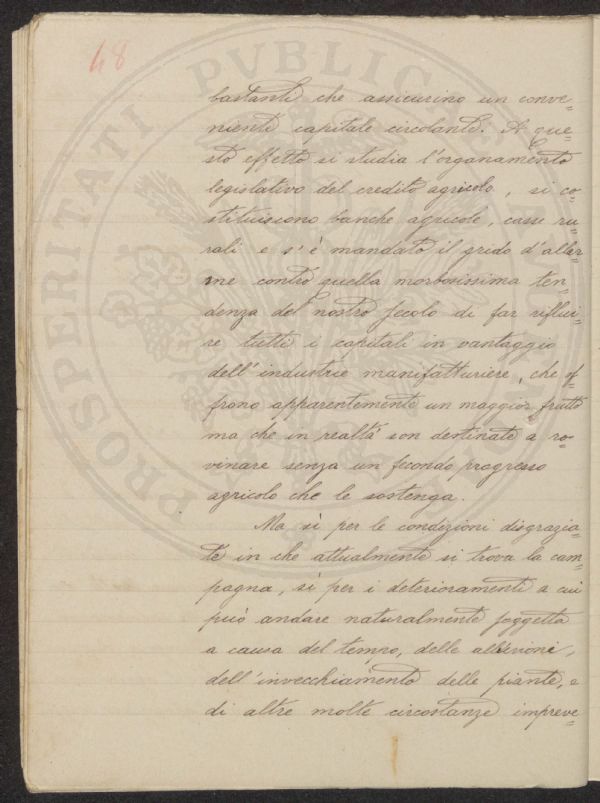 48
bastanti che assicurino un conve=
niente capitale circolante. A que=
sto effetto si studia l'organamento
legislativo del credito agricolo, si co=
stituiscono banche agricole, casse ru=
rali e s'è mandato il grido d'allar=
me contro quella morbosissima ten=
denza del nostro secolo di far riflui=
re tutti i capitali in vantaggio
dell'industrie manifatturiere, che of=
frono apparentemente un maggior frutto
ma che in realtà son destinate a ro=
vinare senza un fecondo progresso
agricolo che le sostenga.
Ma sì per le condizioni disgrazia=
te in che attualmente si trova la cam=
pagna, sì per i deterioramenti a cui
può andare naturalmente soggetta
a causa del tempo, delle alluvioni,
dell'invecchiamento delle piante, e
di altre molte circostanze impreve=